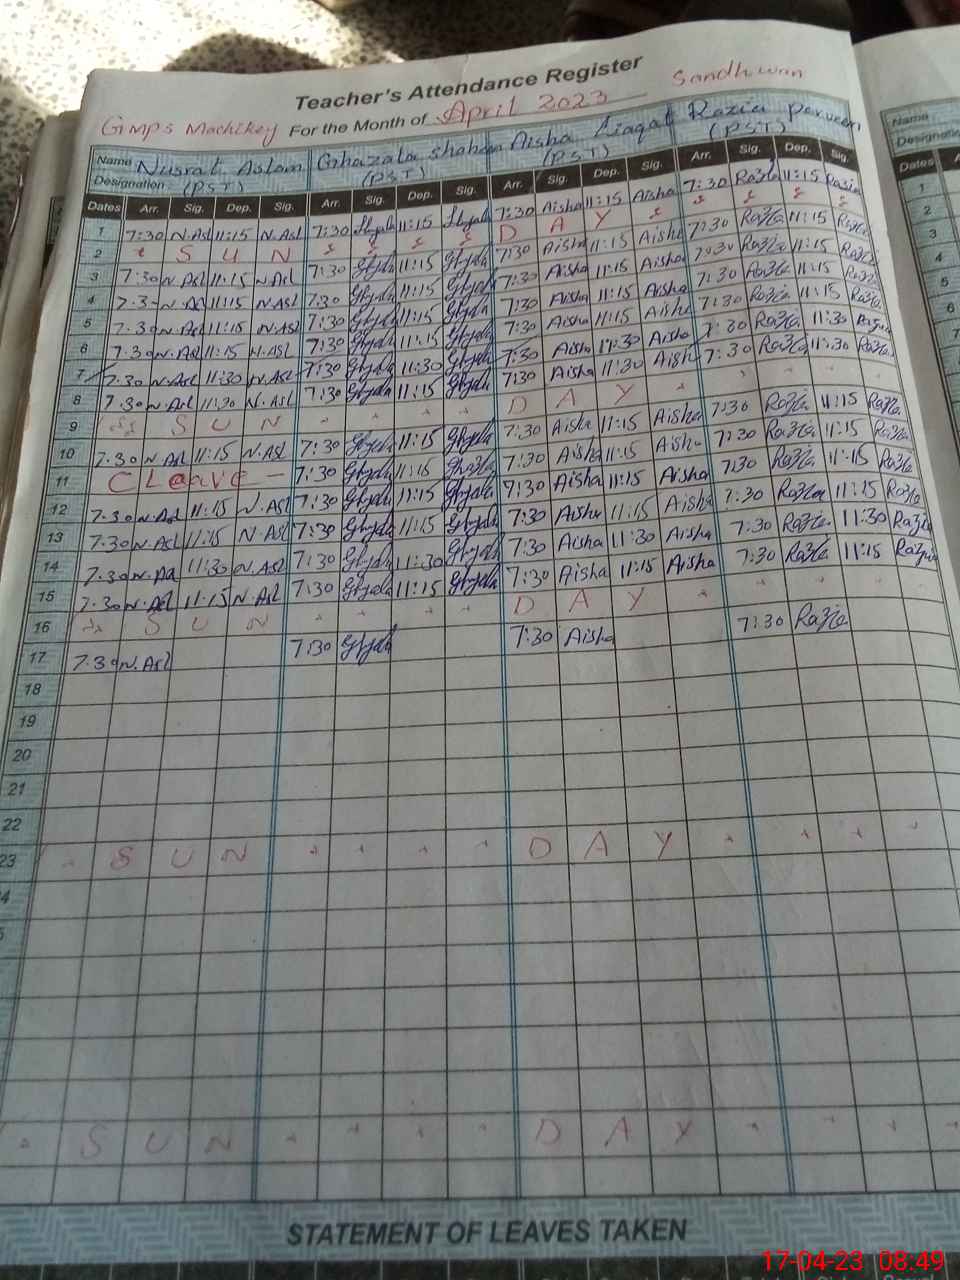 Teacher's Attendance Register Sandhwan
GMPS Machikey For the Month of April 2023
Name Nusrat Aslam Ghazala shaheen Aisha Liaqat Razia Parveen
Designation (PST) (PST) (PST) (PST)
Dates Arr. Sig. Dep. Sig. Arr. Sig. Dep. Sig. Arr. Sig. Dep. Sig. Arr. Sig. Dep. Sig.
1 7:30 N.Asl 11:15 N.Asl 7:30 11:15 7:30 Aisha 11:15 Aisha 7:30 Razia 11:15 Razia
2 S U N D A Y
3 7:30 N.Asl 11:15 N.Asl 7:30 Ghzala 11:15 Ghzala 7:30 Aisha 11:15 Aisha 7:30 Razia 11:15 Razia
4 7:30 N.Asl 11:15 N.Asl 7:30 Ghzala 11:15 Ghzala 7:30 Aisha 11:15 Aisha 7:30 Razia 11:15 Razia
5 7:30 N.Asl 11:15 N.Asl 7:30 Ghzala 11:15 Ghzala 7:30 Aisha 11:15 Aisha 7:30 Razia 11:15 Razia
6 7:30 N.Asl 11:15 N.Asl 7:30 Ghzala 11:15 Ghzala 7:30 Aisha 11:15 Aisha 7:30 Razia 11:15 Razia
7 7:30 N.Asl 11:30 N.Asl 7:30 Ghzala 11:30 Ghzala 7:30 Aisha 11:30 Aisha 7:30 Razia 11:30 Razia
8 7:30 N.Asl 11:30 N.Asl 7:30 Ghzala 11:15 Ghzala 7:30 Aisha 11:30 Aisha 7:30 Razia 11:30 Razia
9 S U N D A Y
10 7:30 N.Asl 11:15 N.Asl 7:30 Ghzala 11:15 Ghzala 7:30 Aisha 11:15 Aisha 7:30 Razia 11:15 Razia
11 C Leave 7:30 Ghzala 11:15 Ghazla 7:30 Aisha 11:15 Aisha 7:30 Razia 11:15 Razia
12 7:30 N.Asl 11:15 N.Asl 7:30 Ghzala 11:15 Ghzala 7:30 Aisha 11:15 Aisha 7:30 Razia 11:15 Razia
13 7:30 N.Asl 11:15 N.Asl 7:30 Ghzala 11:15 Ghzala 7:30 Aisha 11:15 Aisha 7:30 Razia 11:15 Razia
14 7:30 N.Asl 11:30 N.Asl 7:30 Ghzala 11:30 Ghzala 7:30 Aisha 11:30 Aisha 7:30 Razia 11:30 Razia
15 7:30 N.Asl 11:15 N.Asl 7:30 Ghzala 11:15 Ghzala 7:30 Aisha 11:15 Aisha 7:30 Razia 11:15 Razia
16 S U N D A Y
17 7:30 N.Asl 7:30 Ghzala 7:30 Aisha 7:30 Razia
18
19
20
21
22
23 S U N D A Y
4
5
S U N D A Y
STATEMENT OF LEAVES TAKEN
Name
Designation
Dates A
1
2
3
4
5
6
7
17-04-23 08:49